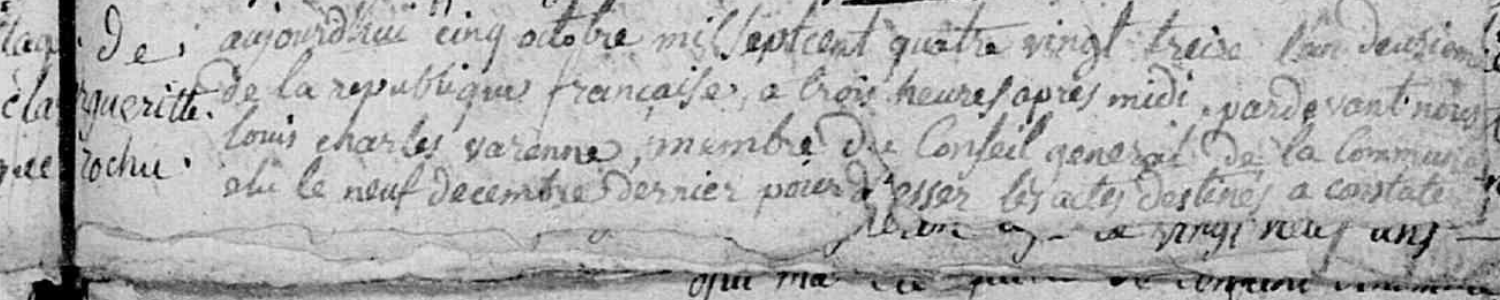 de
aujourdhui cinq octobre mil Septcent quatre vingt treize lan deuxieme
de la republique française, a trois heures apres midi, pardevant nous
rgueritte.
louis charles varenne, membre du Conseil general de la Commune
rochu.
elu le neuf decembre dernier pour dresser les actes destinés a constate
vingt neuf ans
qui ma